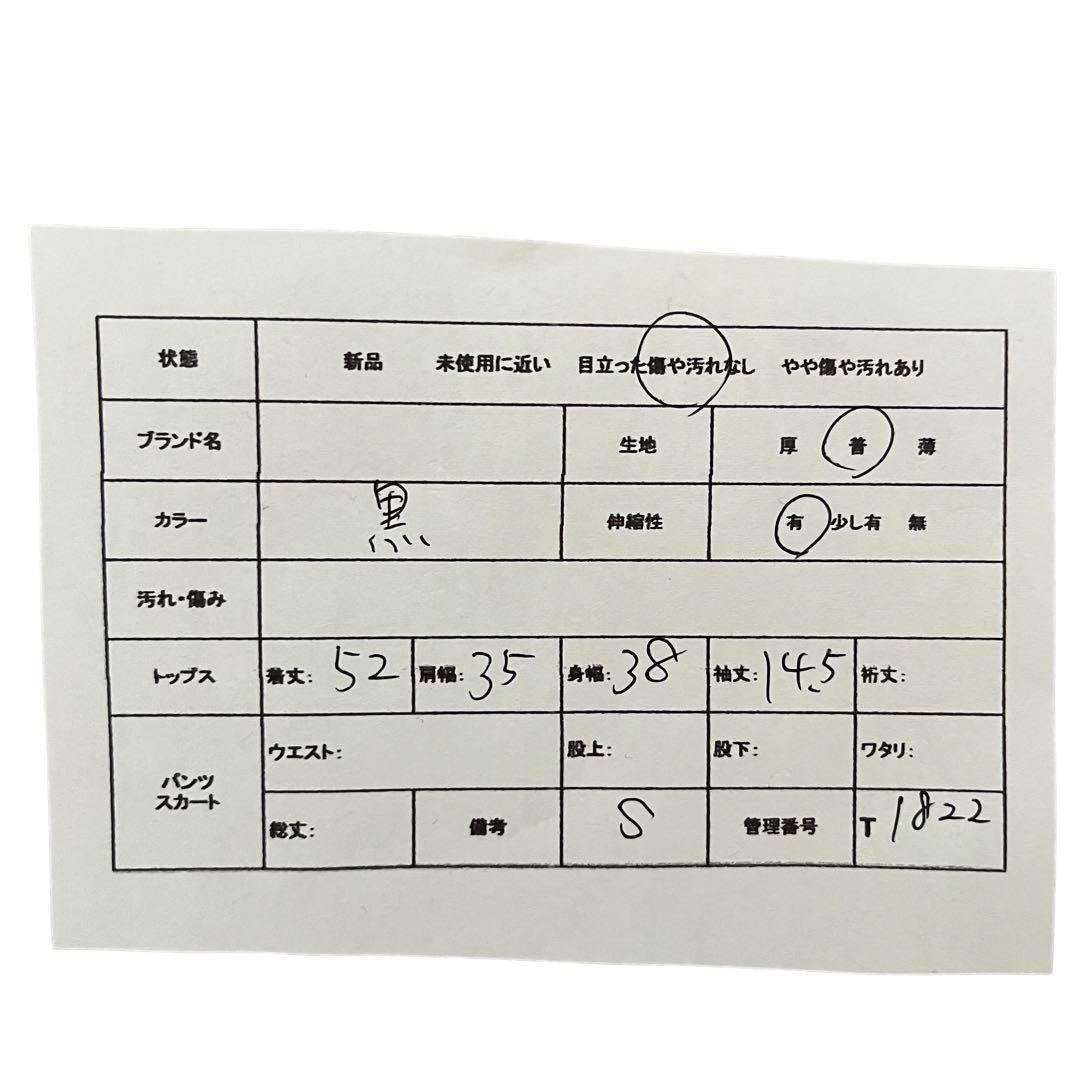 状態 新品 未使用に近い 目立った傷や汚れなし やや傷や汚れあり
ブランド名 生地 厚 普 薄
カラー 黒 伸縮性 有 少し有 無
汚れ・傷み
トップス 着丈: 52 肩幅: 35 身幅: 38 袖丈: 14.5 裄丈:
パンツ
スカート
ウエスト: 股上: 股下: ワタリ:
総丈: 備考 S 管理番号 T 1822